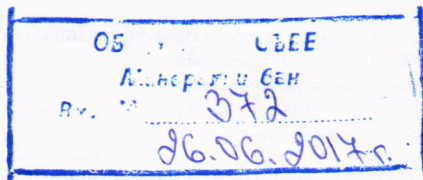 Минерални бани
Вх. № 372
26.06.2017 г.